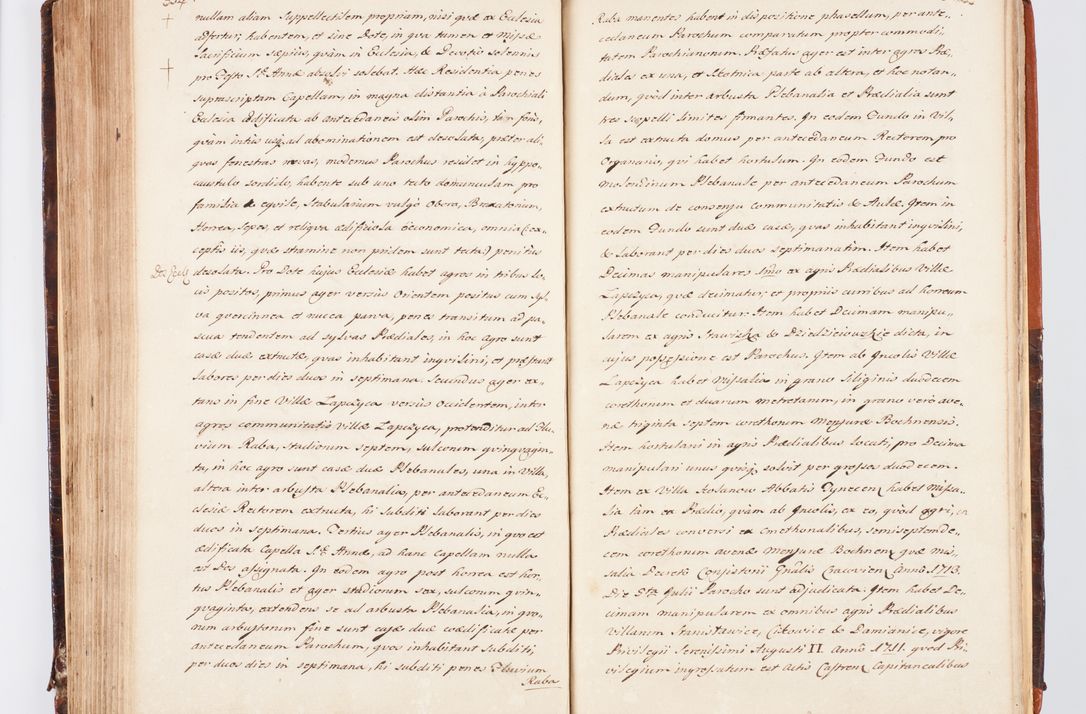 nullam aliam Suppellectilem propriam, nisi quæ ex Ecclesia
adfertur, habentem, et sine Dote, in qua tamen et Missæ
Sacrificium sæpius, quàm in Ecclesia, & Devotio solennis
pro Festo S. Annæ absolvi solebat. Hæc Residentia penes
suprascriptam Capellam, in magna distantia à Parochiali
Ecclesia ædificata ab antecedaneis olim Parochis, tàm foris,
quàm intùs usq ad abominationem est desolata, præter ali,,
quas fenestras novas, modernus Parochus residet in hyppo,,
caustulo sordido, habente sub uno tecto domunculam pro
familia & equile, Stabularium vulgò Obora, Braxatorium,
Horrea, Sepes, et reliqua ædificiola Œconomica, omnia (ex,,
ceptis iis, quæ stramine non pridem sunt tecta) penitus
desolata. Pro Dote hujus Ecclesiæ habet agros in tribus lo,,
cis positos, primus ager versùs Orientem positus cum Syl,,
va quercinea et nucea parva, penes transitum ad pa,,
scua tendentem ad sylvas Prædiales, in hoc agro sunt
casæ duæ extructæ, quas inhabitant inquilini, et præstant
labores per dies duos in septimana. Secundus ager ex,,
tans in fine Villæ Lapczyca versùs Occidentem, inter
agros communitatis villæ Lapczyca, protenditur ad Flu,,
vium Raba, stadiorum septem, sulcorum quinquagin,,
ta, in hoc agro sunt casæ duæ Plebanales, una in Villa,
altera inter arbusta Plebanalia, per antecedaneum Ec,,
clesiæ Rectorem extructa, hi Subditi laborant per dies
duos in septimana. Tertius ager Plebanalis, in quo est
ædificata Capella S. Annæ, ad hanc Capellam nulla
est Dos assignata. In eodem agro post horrea est hor,,
tus Plebanalis et ager stadiorum sex, sulcorum quin,,
quaginta, extendens se ad arbusta Plebanalia, in quo,,
rum arbustorum fine sunt casæ duæ coædificatæ per
antecedaneum Parochum, quas inhabitant Subditi,
per duos dies in septimana, hi subditi penes Fluvium
Raba
Raba manentes habent in dispositione phasellum, per ante,,
cedaneum Parochum comparatum propter commodi,,
tatem Parochianorum. Præfatus ager est inter agros Præ,,
diales ex una, et parte ab altera, et hoc notan,,
dum, quòd inter arbusta Plebanalia et Prædialia sunt
tres scopelli limites firmantes. In eodem Fundo in Vil,,
la est extructa domus per antecedaneum Rectorem pro
Organario, qui habet hortulum. In eodem Fundo est
molendinum Plebanale per antecedaneum Parochum
extructum de consensu communitatis & Aulæ. Item in
eodem Fundo sunt duæ casæ, quas inhabitant inquilini,
& laborant per dies duos septimanatim. Item habet
Decimas manipulares Imo ex agris Prædialibus Villæ
Lapczyca, quæ decimatur, et propriis curribus ad horreum
Plebanale conducitur. Item habet Decimam manipu,,
larem ex agris Stawiska & Dziedzicowzkie dicta, in
cujus possessione est Parochus. Item ab Incolis Villæ
Lapczyca habet Missalia in grano Siliginis duodecem
corethonum et duarum metretarum, in grano verò ave,,
næ triginta septem corethonum Mensuræ Bochnensis.
Item hortulani in agris Prædialibus locati, pro Decima
manipulari unus quisq solvit per grossos duodecem.
Item ex Villa Abbatis Tynecen habet Missa,,
lia tàm ex Prædio, quàm ab Incolis, ex eo, quòd agri,
Prædiales conversi ex Cmethonalibus, semiseptende,,
cem corethonum avenæ Mensuræ Bochnen quæ mis,,
salia Decreto Consistorii Gnalis Cracovien Anno 1713.
Die 5ta Julii Parocho sunt adjudicata. Item habet De,,
cimam manipularem ex omnibus agris Prædialibus
villarum Stanisławice, Cikowice & Damianice, vigore
Privilegii Serenissimi Augusti II. Anno 1711. quod Pri,,
vilegium ingrossatum est Actis Castren Capitanealibus